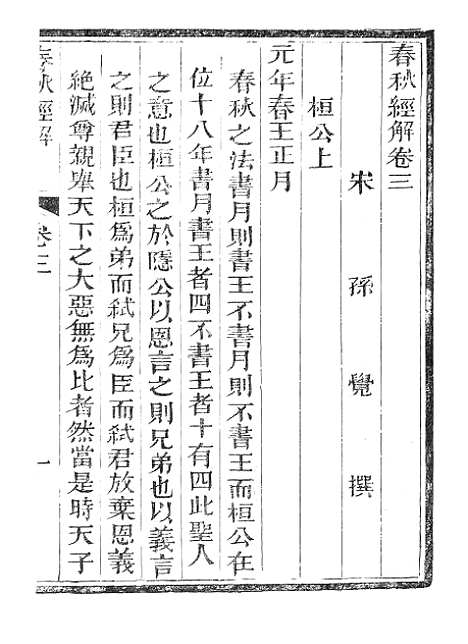 春秋經解卷三
宋 孫 覺 撰
桓公上
元年春王正月
春秋之法書月則書王不書月則不書王而桓公在
位十八年書月書王者四不書王者十有四此聖人
之意也桓公之於隱公以恩言之則兄弟也以義言
之則君臣也桓爲弟而弑兄爲臣而弑君放棄恩義
絶滅尊親舉天下之大惡無爲比者然當是時天子
春秋經解
卷三
一